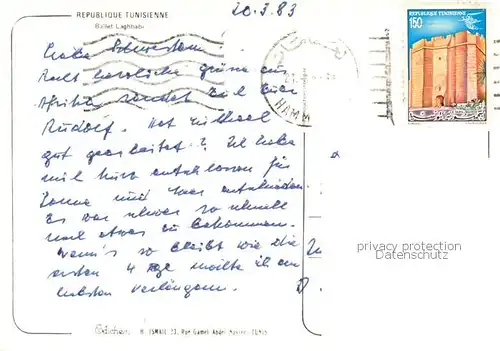 20.3.83
REPUBLIQUE TUNISIENNE
Ballet Laghbabi
REPUBLIQUE TUNISIENNE
150
HAMM
Liebe Schwestern!
Recht herzliche Grüsse aus
Afrika sendet Euch Euer
Rudolf. Hat
gut gearbeitet? Ich habe
mich kurz entschlossen für
Sonne und Meer entschieden.
Es war schwer so schnell
noch etwas zu bekommen.
Wenn's so bleibt wie die
ersten 4 Tage möchte ich am
liebsten verlängern.
privacy protection
Datenschutz
Edition H. ISMAIL 23, Rue Gamel Abdel Nasser - TUNIS